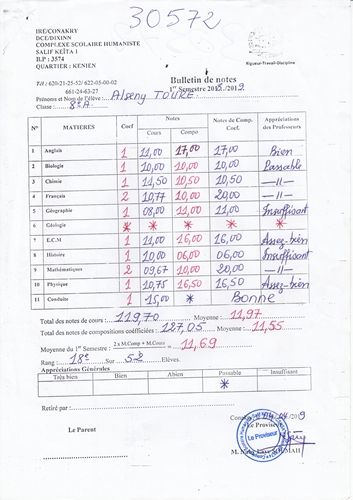 30572
IRE/CONAKRY
DCE/DIXINN
COMPLEXE SCOLAIRE HUMANISTE
SALIF KEÏTA 1
B.P : 3574
QUARTIER : KENIEN
Rigueur-Travail-Discipline
Tél : 620-21-25-52/ 622-05-00-02
661-24-63-27
Bulletin de notes
1er Semestre 2018./2019
Prénoms et Nom de l'élève : Alseny TOURE
Classe : 8è A
N° MATIERES Coef Notes Notes de Comp. Coef. Appréciations des Professeurs
Cours Compo
1 Anglais 1 11,00 17,00 17,00 Bien
2 Biologie 1 10,00 10,00 10,00 Passable
3 Chimie 1 14,50 10,50 10,50 —//—
4 Français 2 10,77 10,00 20,00 —//—
5 Géographie 1 08,00 11,00 11,00 Insuffisant
6 Géologie * * * * *
7 E.C.M 1 11,00 16,00 16,00 Assez-bien
8 Histoire 1 10,00 06,00 06,00 Insuffisant
9 Mathématiques 2 09,67 10,00 20,00 —//—
10 Physique 1 10,75 16,50 16,50 Assez-bien
11 Conduite 1 15,00 * Bonne
Total des notes de cours : 119,70 Moyenne : 11,97
Total des notes de compositions coefficiées : 127,05 Moyenne : 11,55
Moyenne du 1er Semestre : 2 x M.Comp + M.Cours = 11,69
Rang : 18e Sur 52 Elèves.
Appréciations Générales
Très bien Bien Abien Passable Insuffisant
*
Retiré par :
Le Parent
Le Proviseur
Le Proviseur